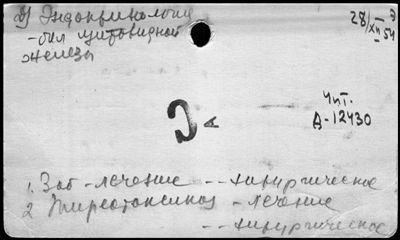 В) Эндокринология
28/XII 54
- бол щитовидной
железы
Чит.
А-12430
1. Зоб - лечение -- хирургическое
2 Тиреотоксикоз - лечение
-- хирургическое